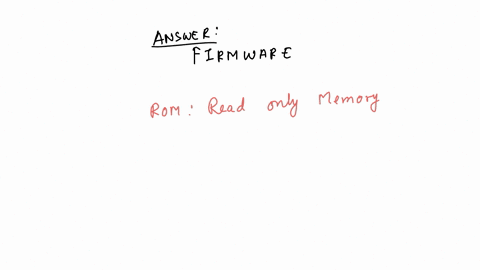 ANSWER:
FIRMWARE
ROM: Read only Memory